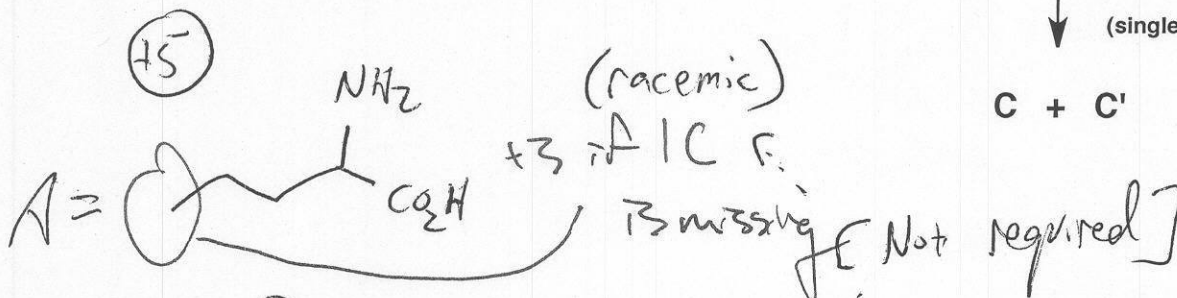 (single
+5
NH2
(racemic)
C + C'
A =
CO2H
+3 if 1C
is missing [Not required]